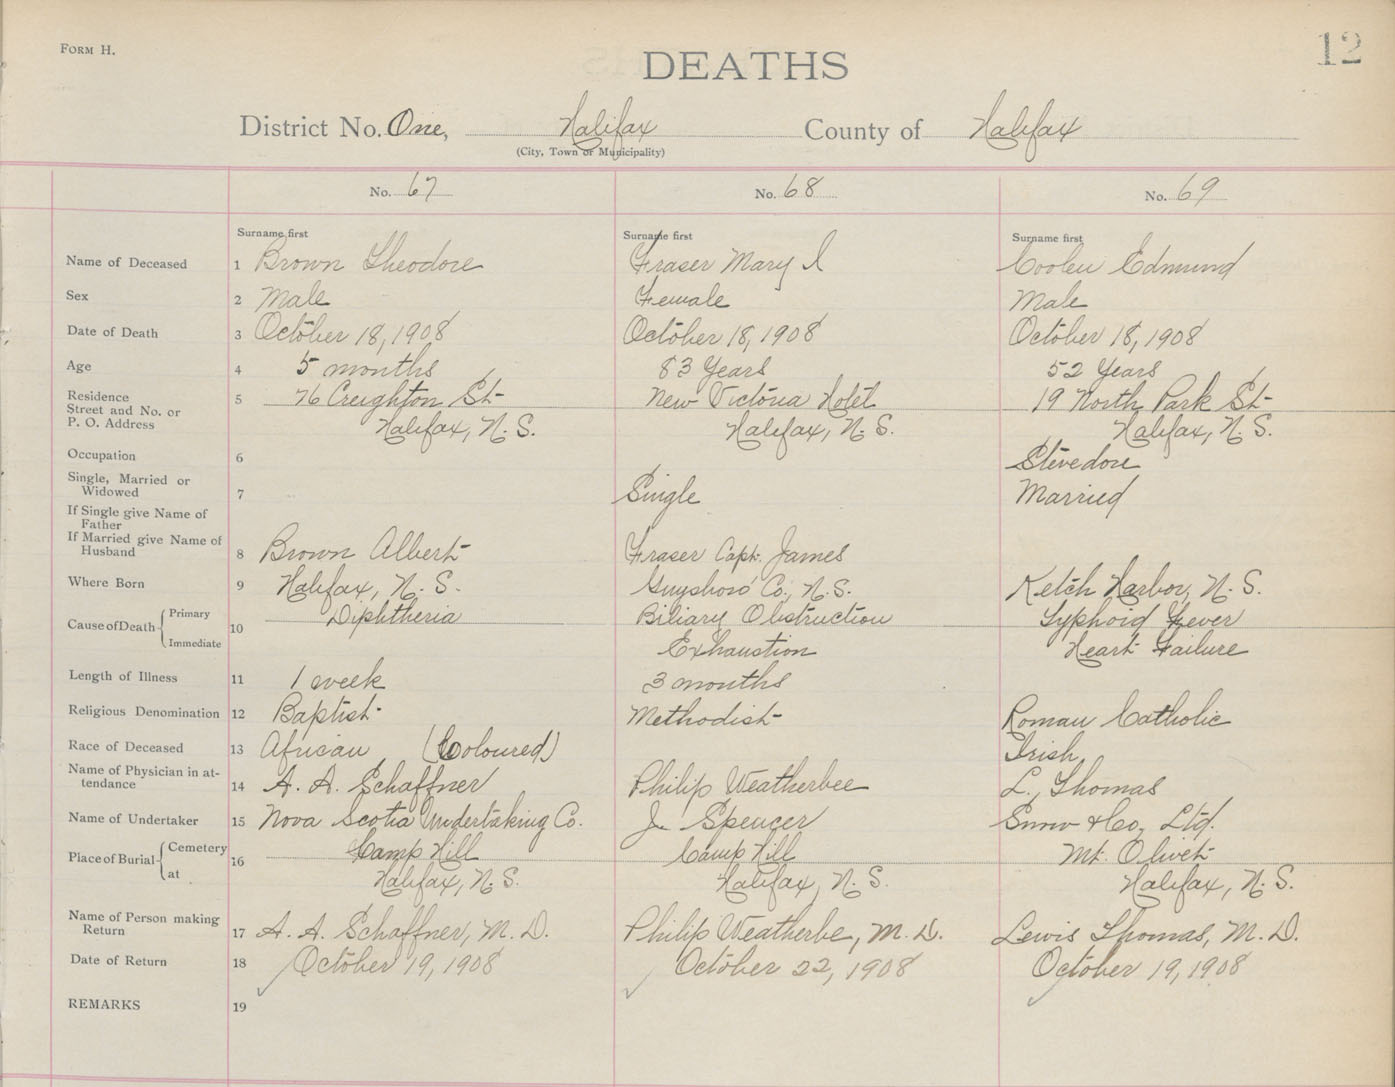 FORM H.
12
DEATHS
District No. One, Halifax County of Halifax
(City, Town or Municipality)
No. 67 No. 68 No. 69
Surname first Surname first Surname first
Name of Deceased 1 Brown Theodore Fraser Mary I Coolen Edmund
Sex 2 Male Female Male
Date of Death 3 October 18, 1908 October 18, 1908 October 18, 1908
Age 4 5 months 83 Years 52 Years
Residence
Street and No. or 5 76 Creighton St New Victoria Hotel 19 North Park St
P. O. Address Halifax, N.S. Halifax, N.S. Halifax, N.S.
Occupation 6 Stevedore
Single, Married or
Widowed 7 Single Married
If Single give Name of
Father
If Married give Name of
Husband 8 Brown Albert Fraser Capt. James
Where Born 9 Halifax, N.S. Guysboro Co., N.S. Ketch Harbor, N.S.
Cause of Death Primary 10 Diphtheria Biliary Obstruction Typhoid Fever
Immediate Exhaustion Heart Failure
Length of Illness 11 1 week 3 months
Religious Denomination 12 Baptist Methodist Roman Catholic
Race of Deceased 13 African (Coloured) Irish
Name of Physician in at-
tendance 14 A. A. Schaffner Philip Weatherbee L. Thomas
Name of Undertaker 15 Nova Scotia Undertaking Co. J. Spencer Snow & Co. Ltd.
Place of Burial Cemetery 16 Camp Hill Camp Hill Mt. Olivet
at Halifax, N.S. Halifax, N.S. Halifax, N.S.
Name of Person making
Return 17 A. A. Schaffner, M.D. Philip Weatherbe, M.D. Lewis Thomas, M.D.
Date of Return 18 October 19, 1908 October 22, 1908 October 19, 1908
REMARKS 19